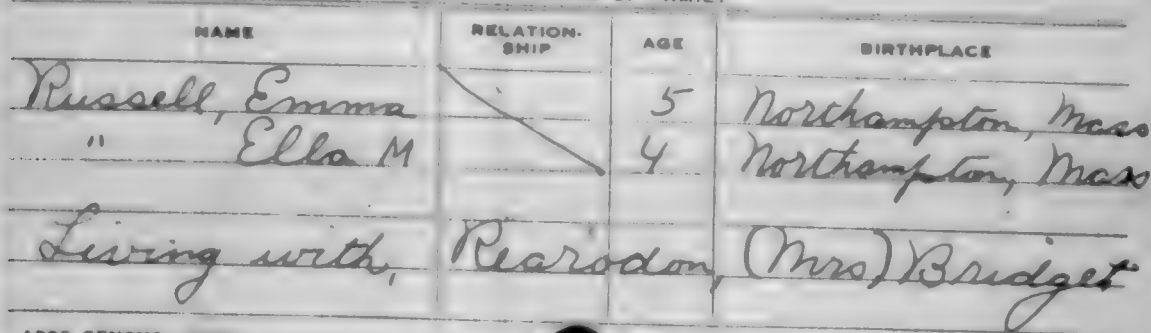 NAME RELATION-SHIP AGE BIRTHPLACE
Russell, Emma 5 Northampton, Mass
" Ella M 4 Northampton, Mass
Living with, Rearodon, (Mrs) Bridget